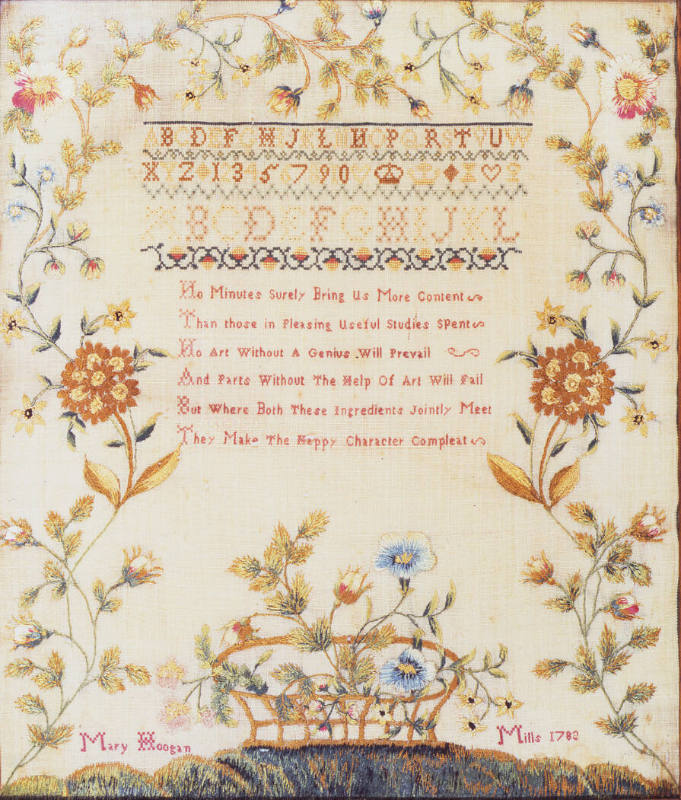 A B C D E F G H I J K L M N O P Q R S T U V W
X Z 1 3 5 7 9 0
A B C D E F G H I J K L
No Minutes Surely Bring Us More Content
Than those in Pleasing Useful Studies Spent
No Art Without A Genius Will Prevail
And Parts Without The Help Of Art Will Fail
But Where Both These Ingredients Jointly Meet
They Make The Happy Character Compleat
Mary Hoogan
Mills 1782